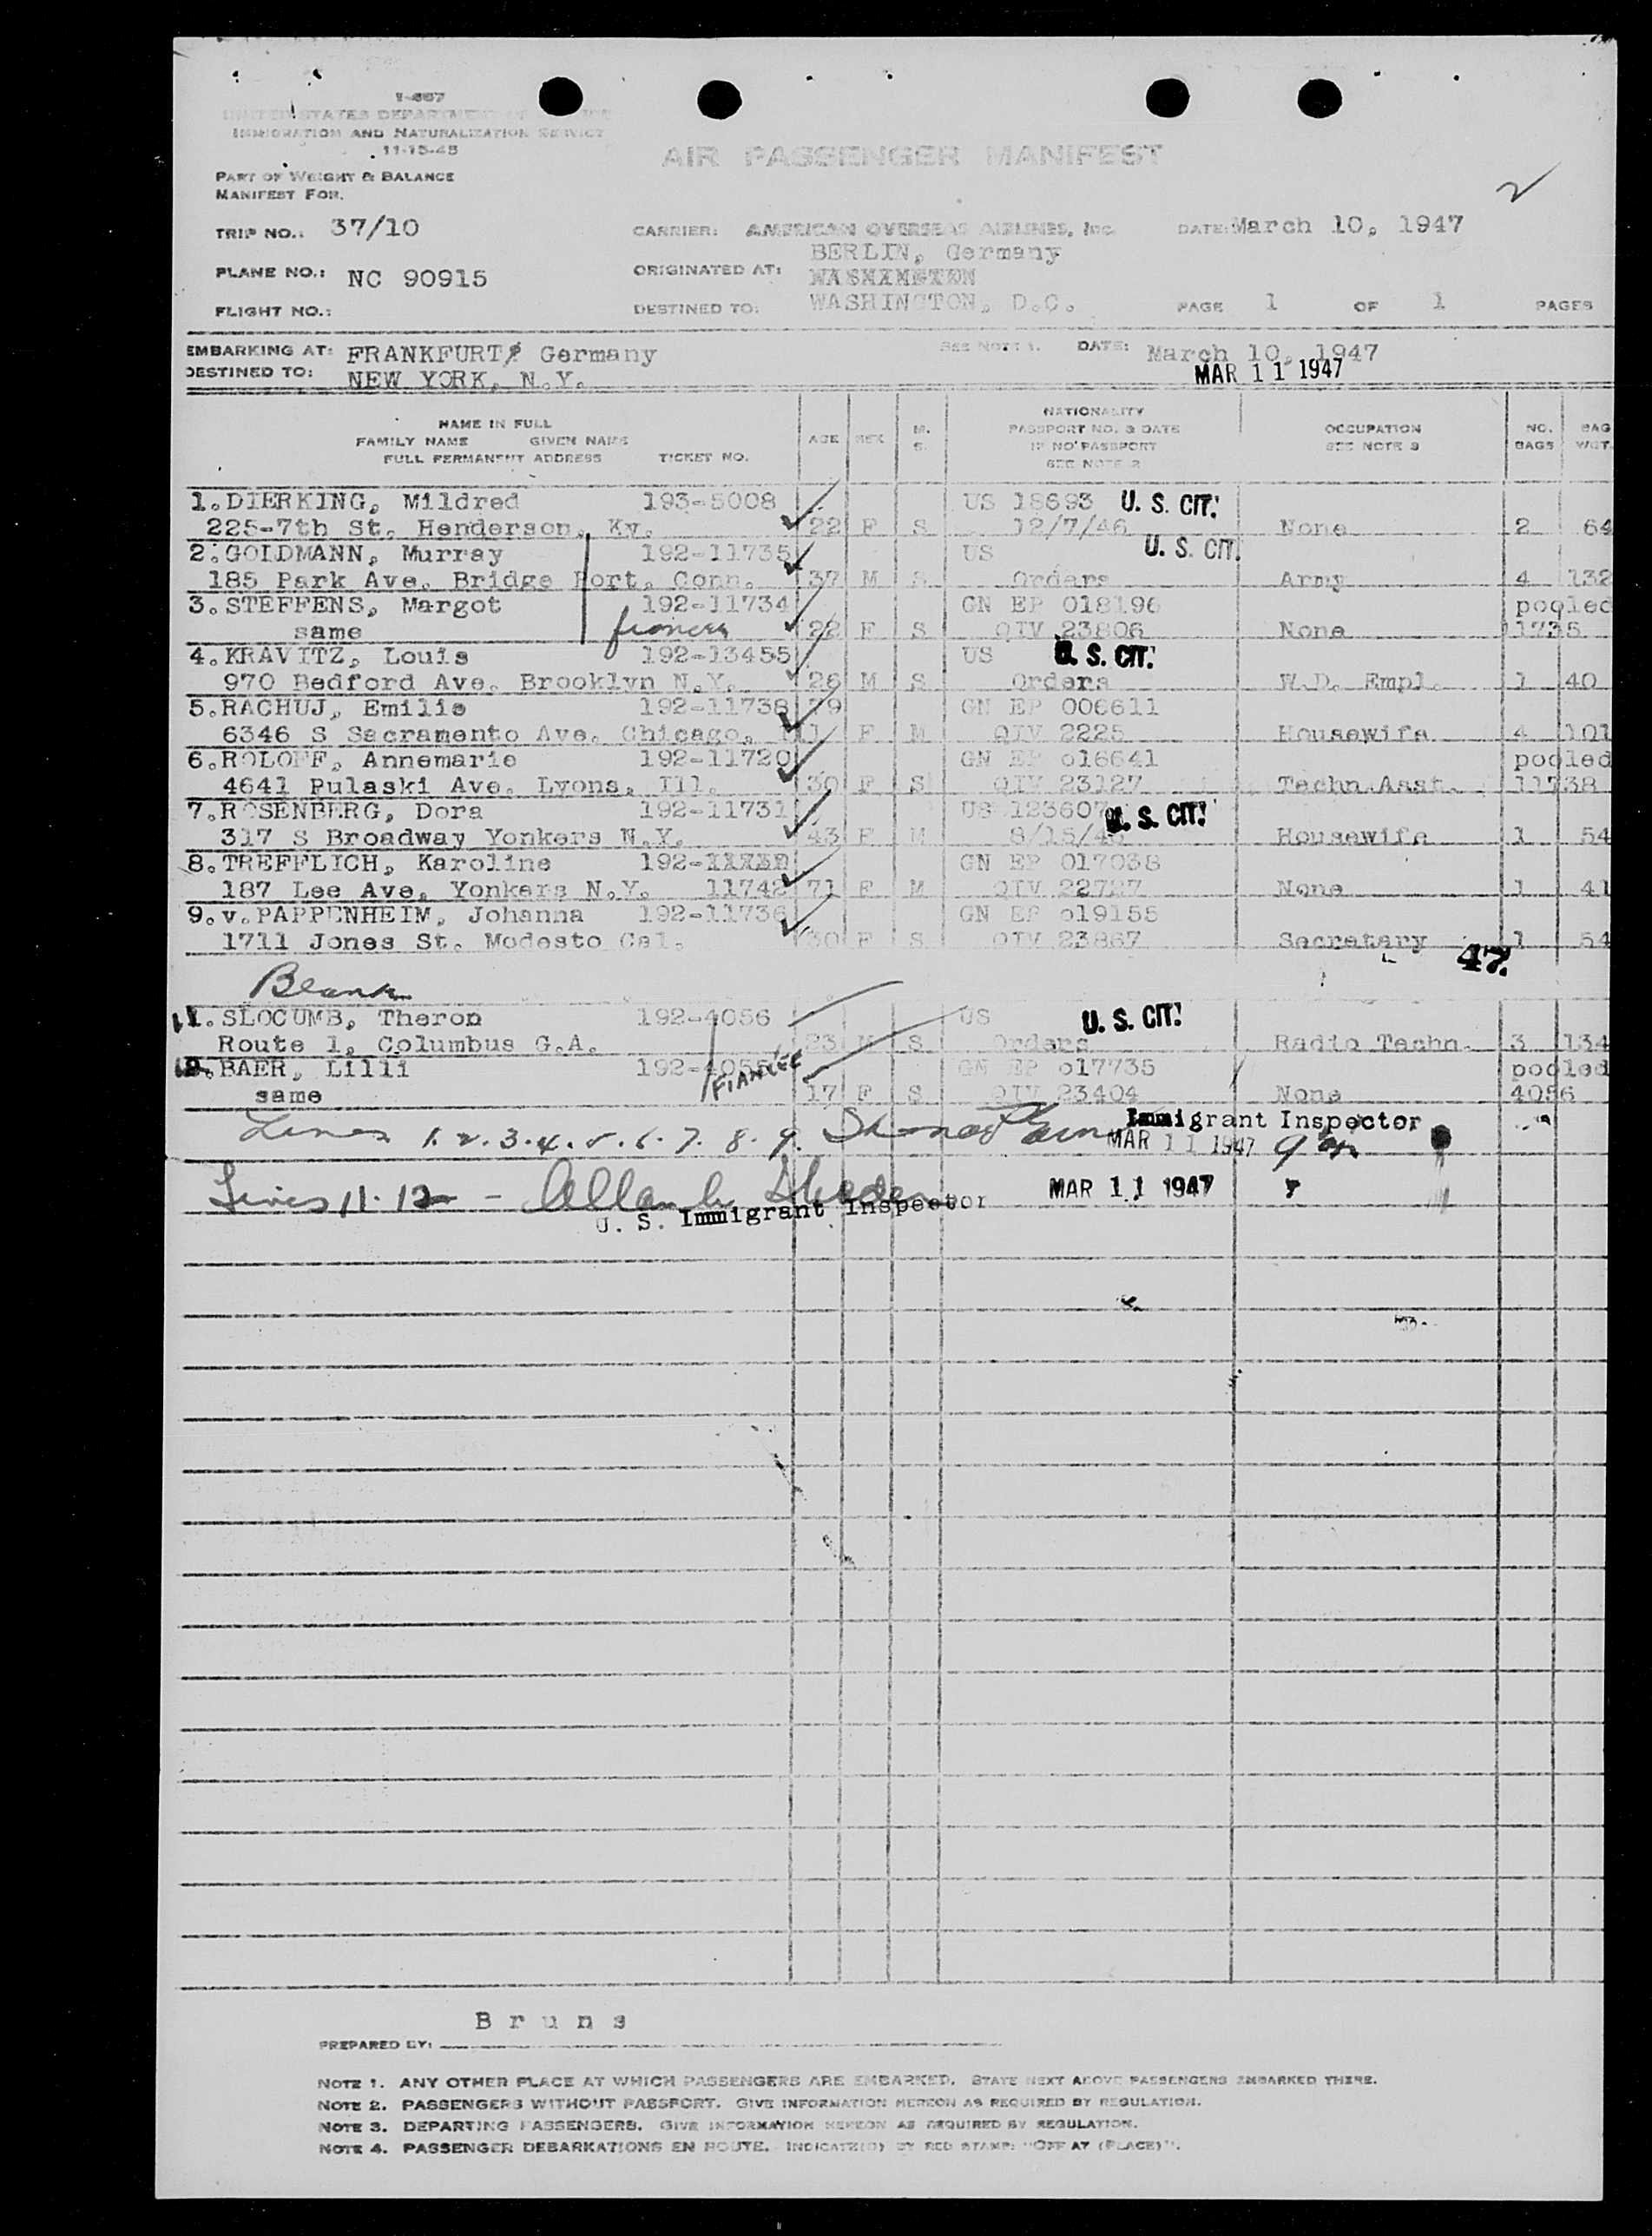 I-467
UNITED STATES DEPARTMENT OF
IMMIGRATION AND NATURALIZATION SERVICE
11-15-45
AIR PASSENGER MANIFEST
PART OF WEIGHT & BALANCE
MANIFEST FOR.
2
TRIP NO.: 37/10 CARRIER: AMERICAN OVERSEAS AIRLINES, Inc. DATE: March 10, 1947
BERLIN, Germany
PLANE NO.: NC 90915 ORIGINATED AT: WASHINGTON
FLIGHT NO.: DESTINED TO: WASHINGTON, D.C. PAGE 1 OF 1 PAGES
EMBARKING AT: FRANKFURT, Germany SEE NOTE 1. DATE: March 10, 1947
DESTINED TO: NEW YORK, N.Y. MAR 11 1947
NAME IN FULL
FAMILY NAME GIVEN NAME
FULL PERMANENT ADDRESS TICKET NO. AGE SEX M. S. NATIONALITY PASSPORT NO. & DATE IF NO PASSPORT SEE NOTE 2 OCCUPATION SEE NOTE 3 NO. BAGS BAG WGT.
1. DIERKING, Mildred 193-5008 US 18693 U. S. CIT.
225-7th St. Henderson, Ky. 22 F S 12/7/46 None 2 64
2. GOLDMANN, Murray 192-11735 US U. S. CIT.
185 Park Ave. Bridge Port, Conn. 37 M S Orders Army 4 132
3. STEFFENS, Margot 192-11734 GN EP 018196 pooled
same 22 F S QIV 23806 None 11735
4. KRAVITZ, Louis 192-13455 US U. S. CIT.
970 Bedford Ave. Brooklyn N.Y. 26 M S Orders W.D. Empl. 1 40
5. RACHUJ, Emilie 192-11738 79 GN EP 006611
6346 S Sacramento Ave. Chicago, Ill F M QIV 2225 Housewife 4 101
6. ROLOFF, Annemarie 192-11720 GN EP o16641 pooled
4641 Pulaski Ave. Lyons, Ill. 30 F S QIV 23127 Techn.Asst. 11738
7. ROSENBERG, Dora 192-11731 US 123607 U. S. CIT.
317 S Broadway Yonkers N.Y. 43 F M 8/15/46 Housewife 1 54
8. TREFFLICH, Karoline 192- GN EP 017038
187 Lee Ave, Yonkers N.Y. 11742 71 F M QIV 22727 None 1 41
9. v. PAPPENHEIM, Johanna 192-11736 GN EP o19155
1711 Jones St. Modesto Cal. 30 F S QIV 23867 Secretary 1 54
47.
Blank
11. SLOCUMB, Theron 192-4056 US U. S. CIT.
Route 1, Columbus G.A. 23 M S Orders Radio Techn. 3 134
12. BAER, Lilli 192-4055 FIANCEE GN EP o17735 pooled
same 17 F S QIV 23404 None 4056
Lines 1. 2. 3. 4. 5. 6. 7. 8. 9. Immigrant Inspector
MAR 11 1947
Lines 11. 12 - MAR 11 1947
U. S. Immigrant Inspector
Bruns
PREPARED BY:
NOTE 1. ANY OTHER PLACE AT WHICH PASSENGERS ARE EMBARKED. STATE NEXT ABOVE PASSENGERS EMBARKED THERE.
NOTE 2. PASSENGERS WITHOUT PASSPORT. GIVE INFORMATION HEREON AS REQUIRED BY REGULATION.
NOTE 3. DEPARTING PASSENGERS. GIVE INFORMATION HEREON AS REQUIRED BY REGULATION.
NOTE 4. PASSENGER DEBARKATIONS EN ROUTE. INDICATE(D) BY RED STAMP: "OFF AT (PLACE)".